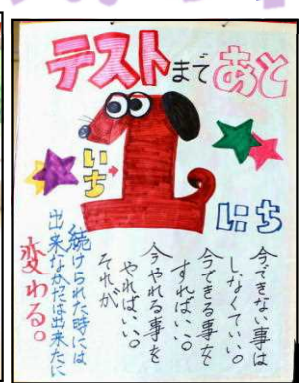 テストまであと
いち
1
にち
今できない事は
しなくていい。
今できる事を
すればいい。
今やれる事を
やればいい。
それが
続けられた時には
出来なかたは出来たに
変わる。